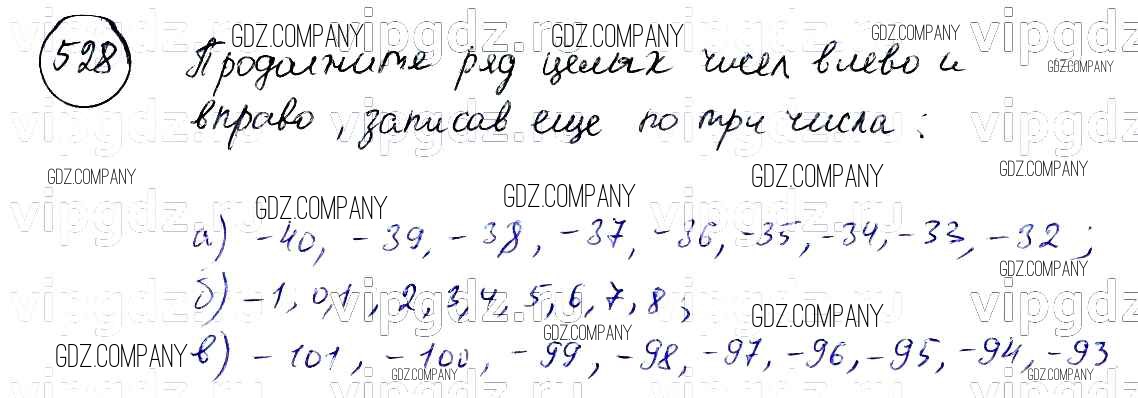 528 Продолжите ряд целых чисел влево и
вправо, записав еще по три числа:
а) -40, -39, -38, -37, -36, -35, -34, -33, -32;
б) -1, 0, 1, 2, 3, 4, 5, 6, 7, 8;
в) -101, -100, -99, -98, -97, -96, -95, -94, -93
GDZ.COMPANY
vipgdz.ru